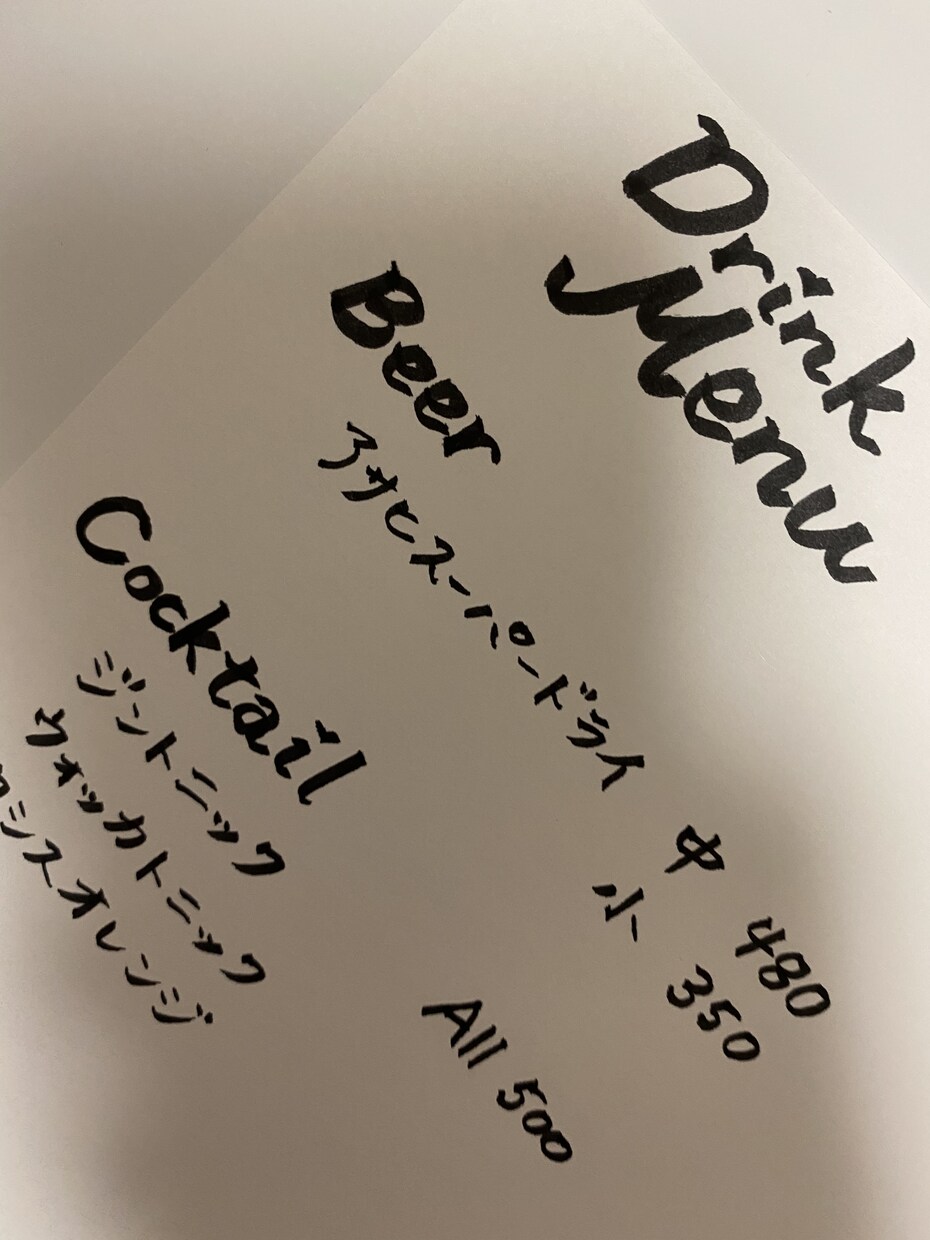 Drink
Menu
Beer
アサヒスーパードライ 中 480
小 350
Cocktail All 500
ジントニック
ウォッカトニック
カシスオレンジ